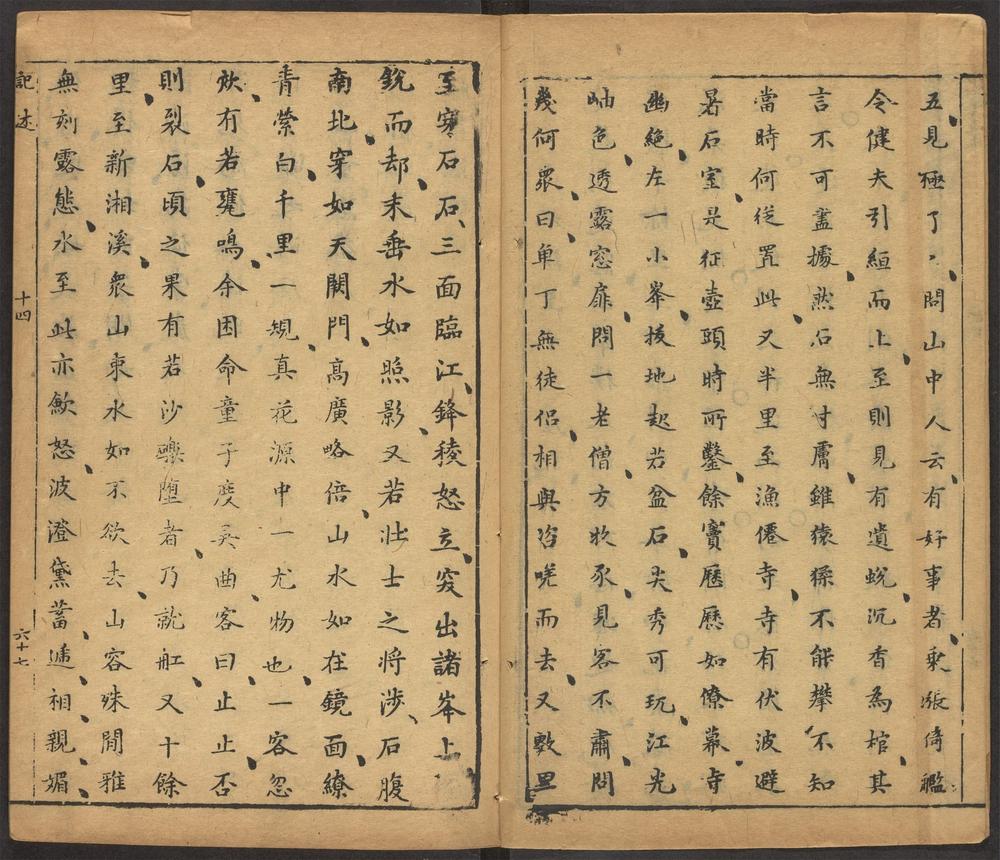 五見極了了問山中人云有好事者乘漲倚艦
令健夫引絙而上至則見有遺蛻沉香為棺其
言不可盡據然石無寸膚雖猿猱不能攀不知
當時何從置此又半里至漁僊寺寺有伏波避
暑石室是征壺頭時所鑿餘竇歷歷如僚幕寺
幽絕左一小峯拔地起若盆石尖秀可玩江光
岫色透露窓扉問一老僧方牧豕見客不肅問
幾何眾曰单丁無徒侶相與咨嗟而去又數里
至穿石石三面臨江鋒稜怒立突出諸峯上
銳而却末垂水如照影又若壯士之將涉石腹
南北穿如天闕門高廣略倍山水如在鏡面繚
青縈白千里一規真花源中一尤物也一客忽
欬有若甕鳴余因命童子度吳曲客曰止止否
則裂石頃之果有若沙礫墮者乃就舡又十餘
里至新湘溪衆山束水如不欲去山容殊閒雅
無刻露態水至此亦歛怒波澄黛蓄遞相親媚
記述
十四
六十七